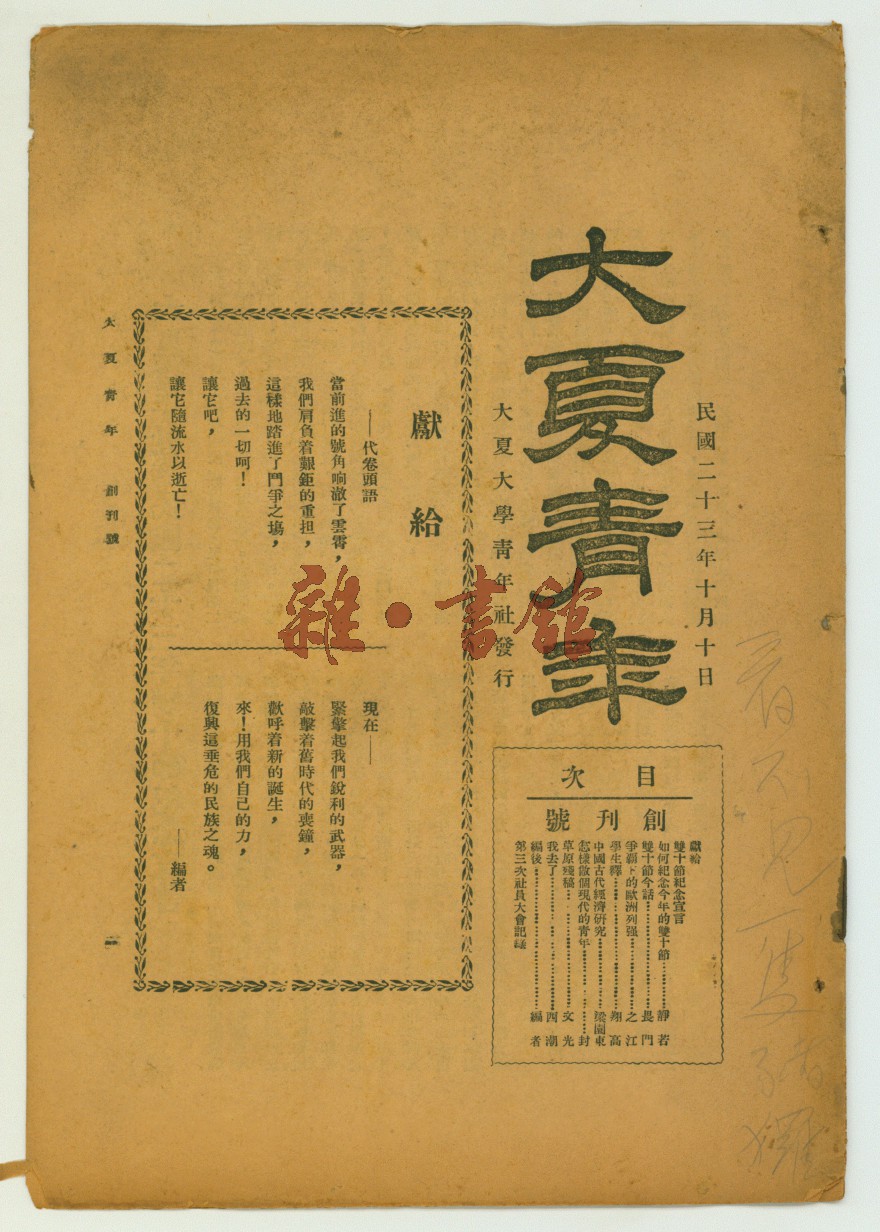 民國二十三年十月十日
大夏青年
大夏大學青年社發行
目次
創刊號
獻給
雙十節紀念宣言
如何紀念今年的雙十節…………靜若
雙十節今話…………畏門
爭霸下的歐洲列强…………之江
學生譚…………翔高
中國古代經濟研究…………梁園東
怎樣做個現代的青年…………封
草原殘稿…………文光
我去了…………四潮
編後…………編者
第三次社員大會記錄
獻給
——代卷頭語
當前進的號角响澈了雲霄,
我們肩負着艱鉅的重担,
這樣地踏進了鬥爭之塲,
過去的一切呵!
讓它吧,
讓它隨流水以逝亡!
現在——
緊擎起我們銳利的武器,
敲擊着舊時代的喪鐘,
歡呼着新的誕生,
來!用我們自己的力,
復興這垂危的民族之魂。
——編者
大夏青年 創刊號
一
雜·書館
看不見一隻